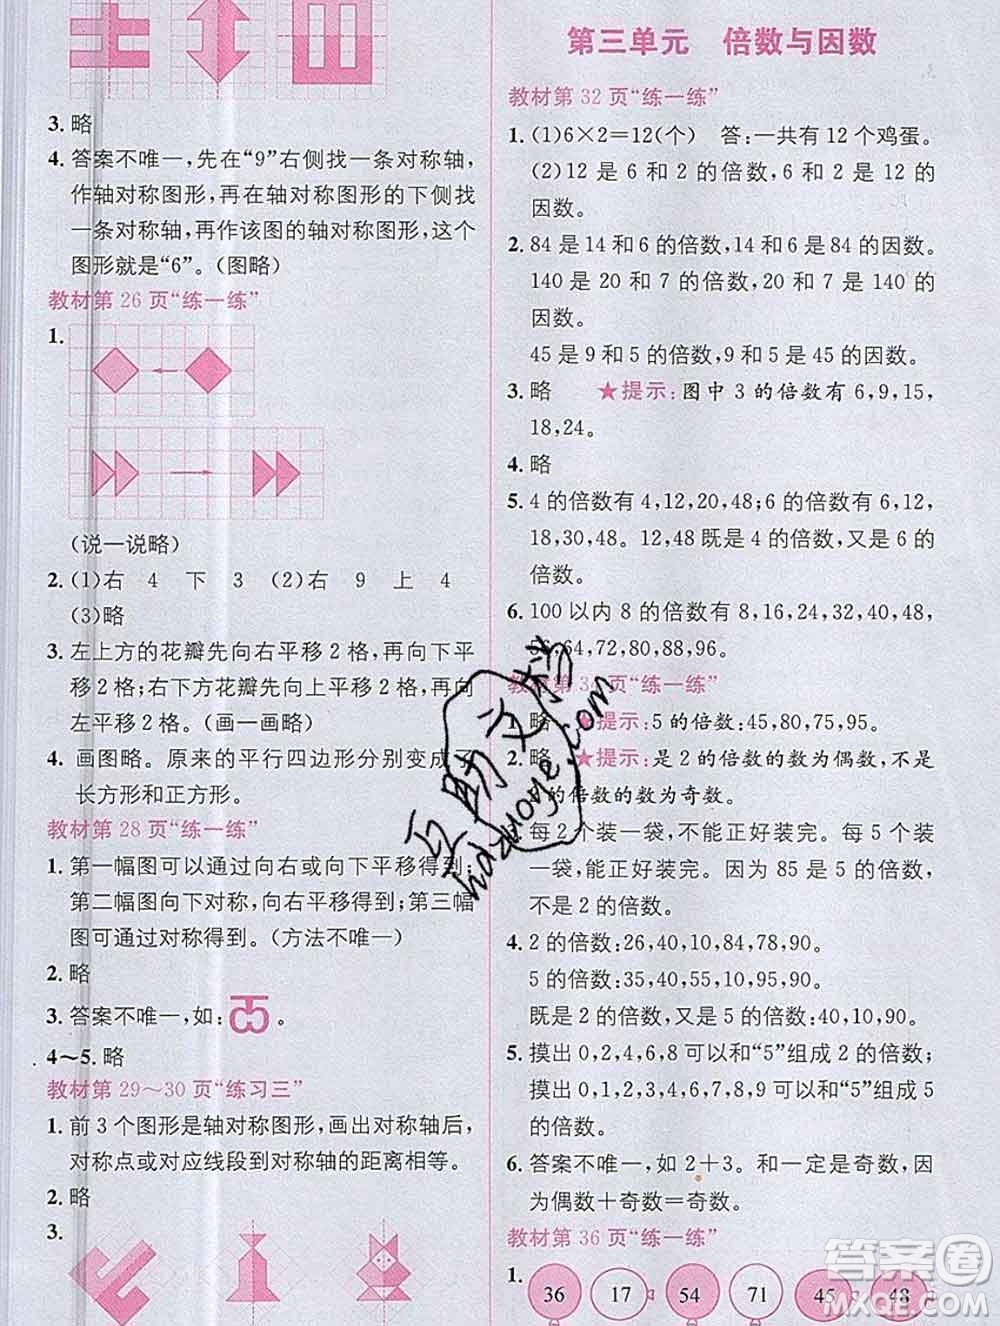 3. 略
4. 答案不唯一,先在“9”右侧找一条对称轴,
作轴对称图形,再在轴对称图形的下侧找
一条对称轴,再作该图的轴对称图形,这个
图形就是“6”。(图略)
教材第 26 页“练一练”
1.
(说一说略)
2. (1)右 4 下 3 (2)右 9 上 4
(3)略
3. 左上方的花瓣先向右平移 2 格,再向下平
移 2 格;右下方花瓣先向上平移 2 格,再向
左平移 2 格。(画一画略)
4. 画图略。原来的平行四边形分别变成了
长方形和正方形。
教材第 28 页“练一练”
1. 第一幅图可以通过向右或向下平移得到;
第二幅图向下对称,向右平移得到;第三幅
图可通过对称得到。(方法不唯一)
2. 略
3. 答案不唯一,如: 。
4~5. 略
教材第 29~30 页“练习三”
1. 前 3 个图形是轴对称图形,画出对称轴后,
对称点或对应线段到对称轴的距离相等。
2. 略
3.
第三单元 倍数与因数
教材第 32 页“练一练”
1. (1)6×2=12(个) 答:一共有 12 个鸡蛋。
(2)12 是 6 和 2 的倍数,6 和 2 是 12 的
因数。
2. 84 是 14 和 6 的倍数,14 和 6 是 84 的因数。
140 是 20 和 7 的倍数,20 和 7 是 140 的
因数。
45 是 9 和 5 的倍数,9 和 5 是 45 的因数。
3. 略 ★提示:图中 3 的倍数有 6,9,15,
18,24。
4. 略
5. 4 的倍数有 4,12,20,48;6 的倍数有 6,12,
18,30,48。12,48 既是 4 的倍数,又是 6 的
倍数。
6. 100 以内 8 的倍数有 8,16,24,32,40,48,
56,64,72,80,88,96。
教材第 3 页“练一练”
1. 略 ★提示:5 的倍数:45,80,75,95。
2. 略 ★提示:是 2 的倍数的数为偶数,不是
的倍数的数为奇数。
每 2 个装一袋,不能正好装完。每 5 个装
一袋,能正好装完。因为 85 是 5 的倍数,
不是 2 的倍数。
4. 2 的倍数:26,40,10,84,78,90。
5 的倍数:35,40,55,10,75,90。
既是 2 的倍数,又是 5 的倍数:40,10,90。
5. 摸出 0,2,4,6,8 可以和“5”组成 2 的倍数;
摸出 0,1,2,3,4,6,7,8,9 可以和“5”组成 5
的倍数。
6. 答案不唯一,如 2+3。和一定是奇数,因
为偶数+奇数=奇数。
教材第 36 页“练一练”
1. 36 17 54 71 45 48
互助文档
huzhuoye.com
答案圈
MXQE.COM